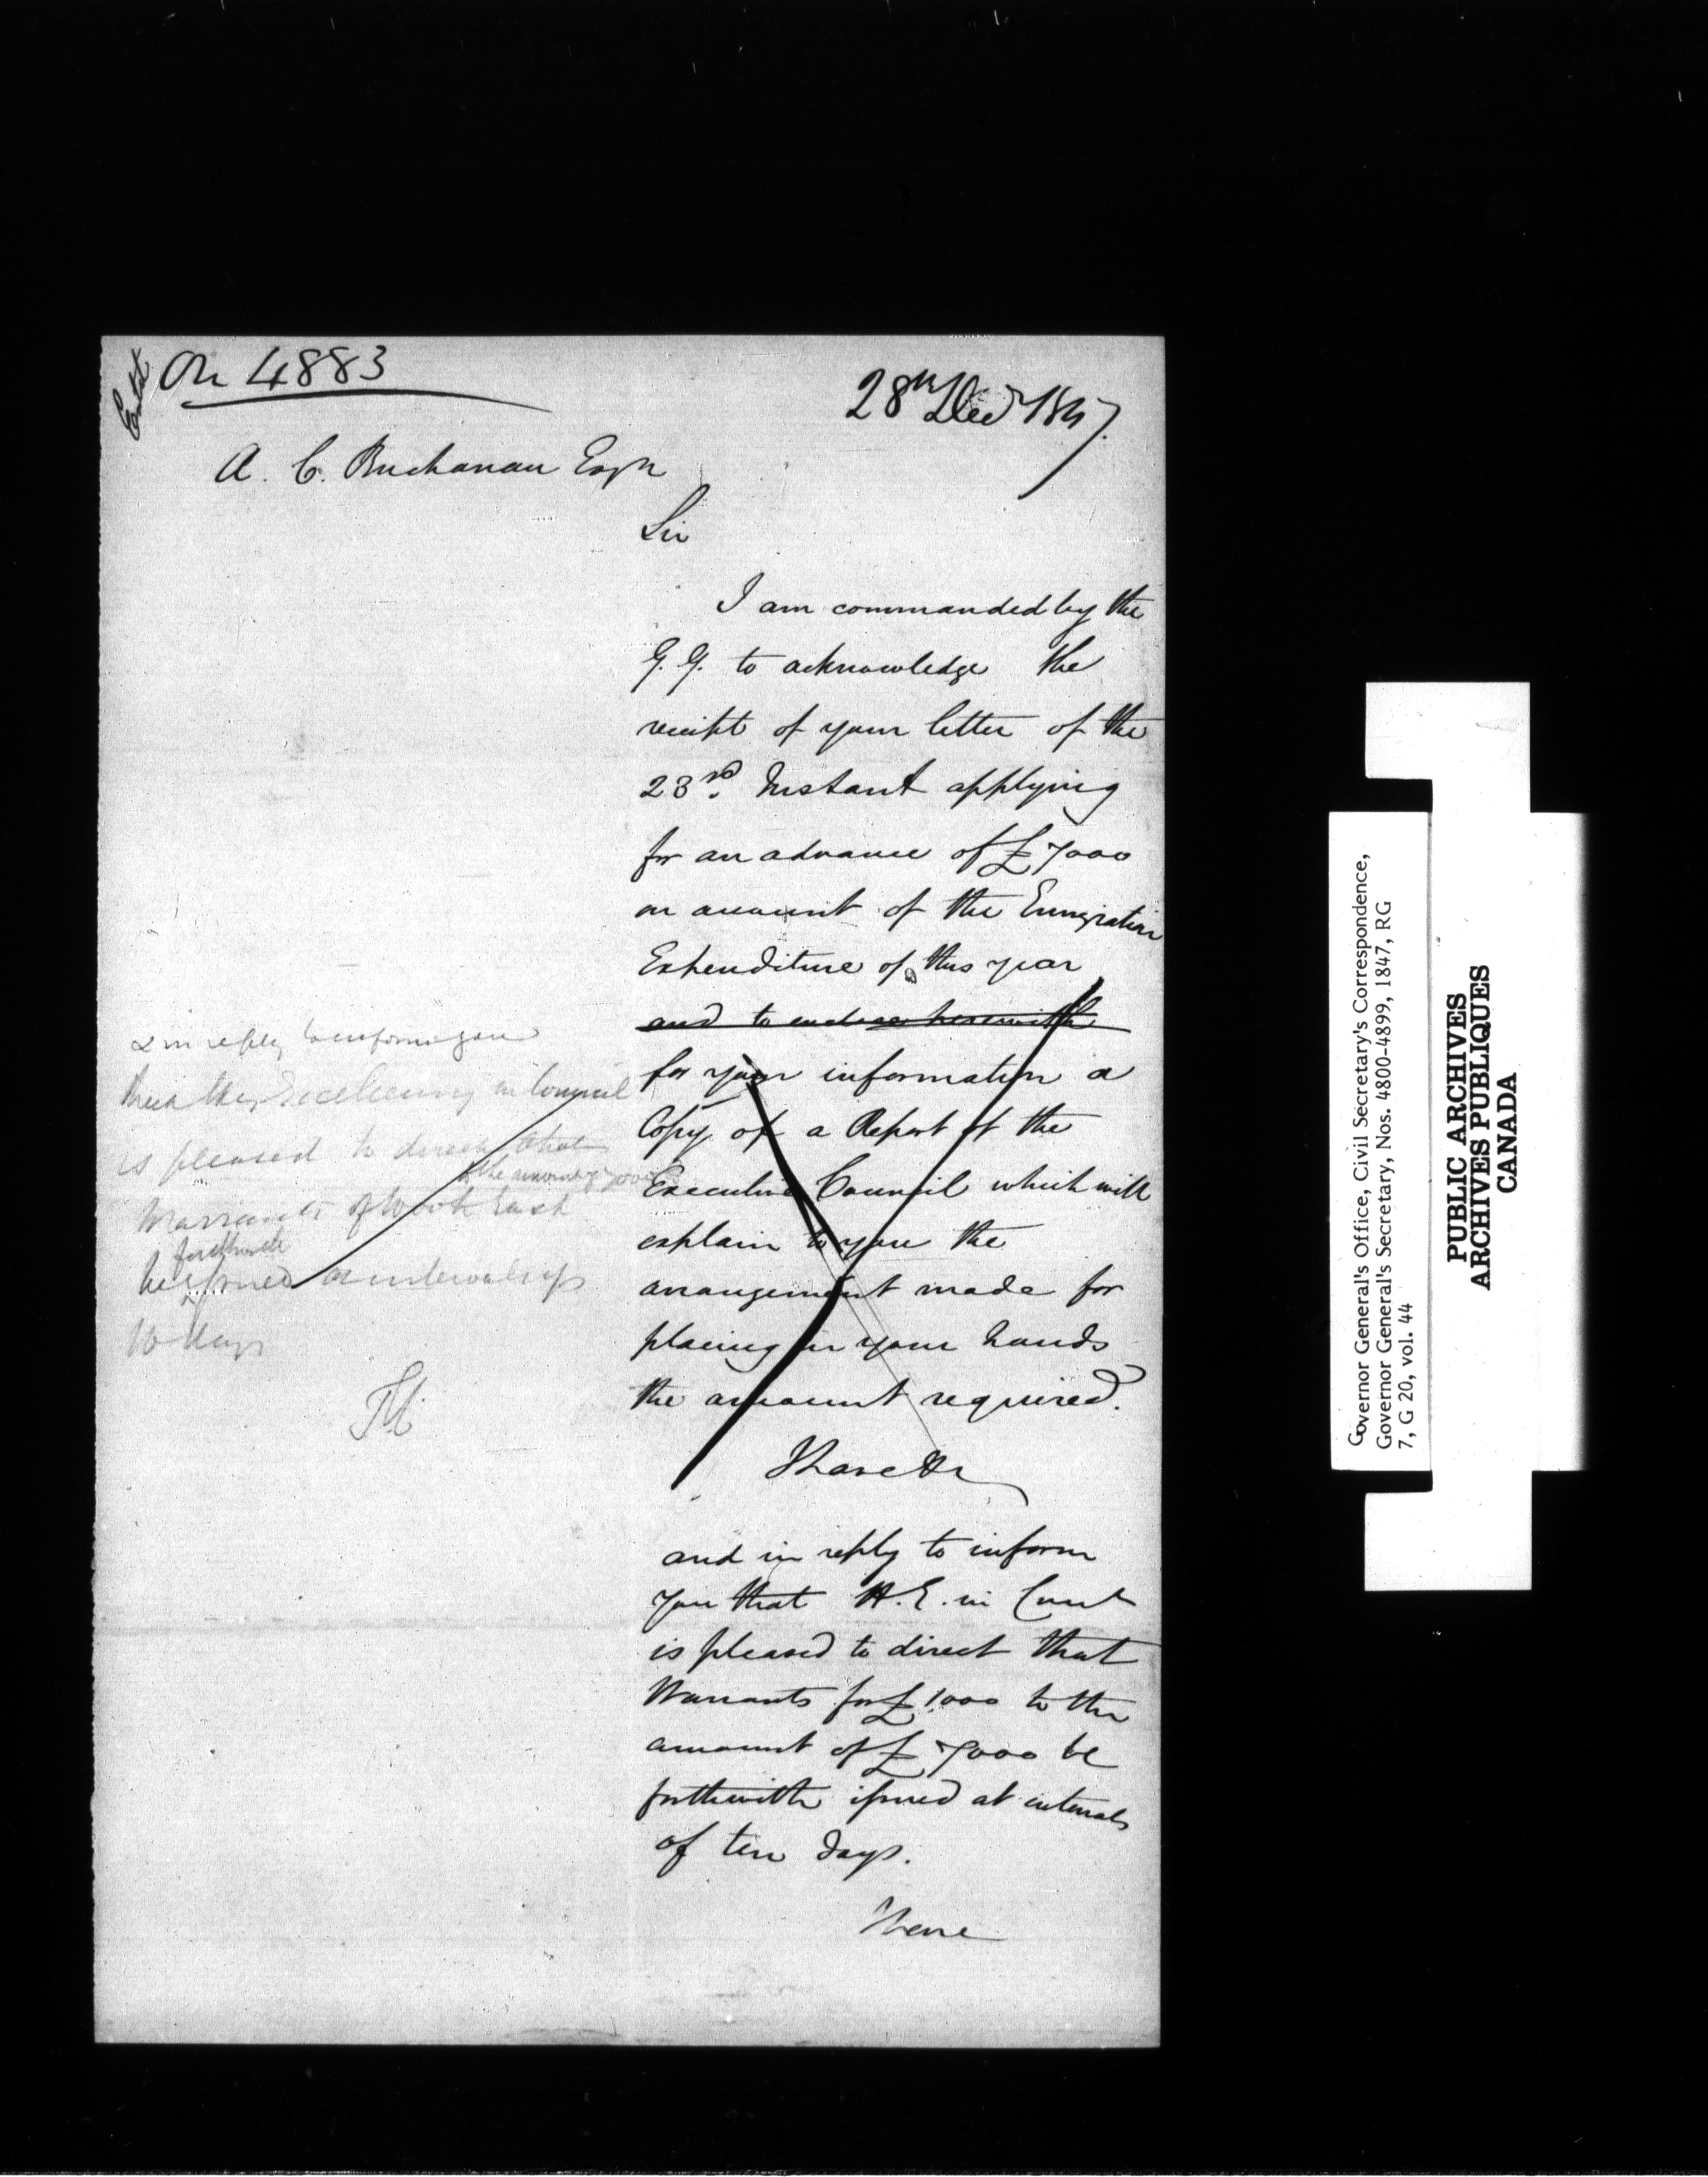 Entd
On 4883
28th Decr 1847.
A. C. Buchanan Esqr
Sir
I am commanded by the
G. G. to acknowledge the
receipt of your letter of the
23rd. Instant applying
for an advance of £7000
on account of the Emigration
Expenditure of this year
and to enclose herewith
for your information a
Copy of a Report of the
Executive Council which will
explain to you the
arrangement made for
placing in your hands
the amount required.
I have &c
and in reply to inform
you that H. E. in Council
is pleased to direct that
Warrants for £1000 to the
amount of £7000 be
forthwith issued at intervals
of ten days.
I have
& in reply to inform you
that His Excellency in Council
is pleased to direct that
to the amount of 7000
Warrants of 1000£ each
forthwith
be issued at intervals of
10 days
Governor General's Office, Civil Secretary's Correspondence,
Governor General's Secretary, Nos. 4800-4899, 1847, RG
7, G 20, vol. 44
PUBLIC ARCHIVES
ARCHIVES PUBLIQUES
CANADA